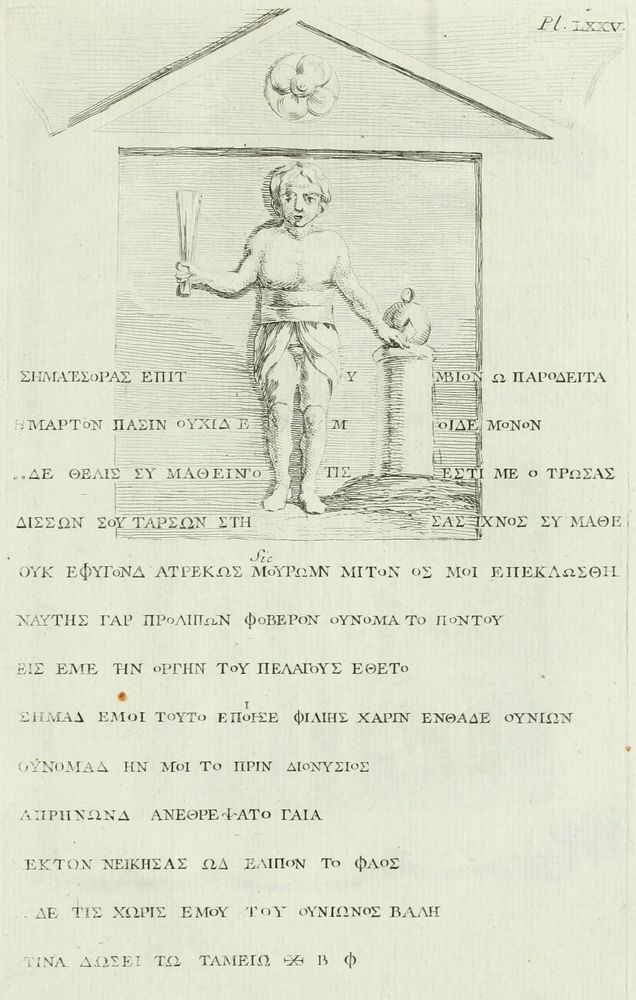 Pl. LXXV.
ΣΗΜΑΕΣΟΡΑΣ ΕΠΙΤ Υ ΜΒΙΟΝ Ω ΠΑΡΟΔΕΙΤΑ
ΗΜΑΡΤΟΝ ΠΑΣΙΝ ΟΥΧΙΔ Ε Μ ΟΙΔΕ ΜΟΝΟΝ
..ΔΕ ΘΕΛΙΣ ΣΥ ΜΑΘΕΙΝΟ ΤΙΣ ΕΣΤΙ ΜΕ Ο ΤΡΩΣΑΣ
ΔΙΣΣΩΝ ΣΟΥ ΤΑΡΣΩΝ ΣΤΗ ΣΑΣ ΙΧΝΟΣ ΣΥ ΜΑΘΕ
Sic
ΟΥΚ ΕΦΥΓΟΝΔ ΑΤΡΕΚΩΣ ΜΙΤΟΝ ΟΣ ΜΟΙ ΕΠΕΚΛΩΣΘΗ
ΝΑΥΤΗΣ ΓΑΡ ΠΡΟΛΙΠΩΝ ΦΟΒΕΡΟΝ ΟΥΝΟΜΑ ΤΟ ΠΟΝΤΟΥ
ΕΙΣ ΕΜΕ ΤΗΝ ΟΡΓΗΝ ΤΟΥ ΠΕΛΑΓΟΥΣ ΕΘΕΤΟ
ΣΗΜΑΔ ΕΜΟΙ ΤΟΥΤΟ ΦΙΛΙΗΣ ΧΑΡΙΝ ΕΝΘΑΔΕ ΟΥΝΙΩΝ
ΟΥΝΟΜΑΔ ΗΝ ΜΟΙ ΤΟ ΠΡΙΝ ΔΙΟΝΥΣΙΟΣ
ΑΠΡΗΝΩΝΔ ΑΝΕΘΡΕΨΑΤΟ ΓΑΙΑ
ΕΚΤΟΝ ΝΕΙΚΗΣΑΣ ΩΔ ΕΛΙΠΟΝ ΤΟ ΦΑΟΣ
..ΔΕ ΤΙΣ ΧΩΡΙΣ ΕΜΟΥ ΤΟΥ ΟΥΝΙΩΝΟΣ ΒΑΛΗ
ΤΙΝΑ ΔΩΣΕΙ ΤΩ ΤΑΜΕΙΩ Β Φ